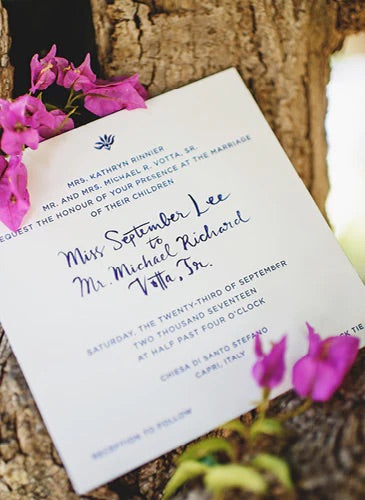 MRS. KATHRYN RINNIER
MR. AND MRS. MICHAEL R. VOTTA, SR.
REQUEST THE HONOUR OF YOUR PRESENCE AT THE MARRIAGE
OF THEIR CHILDREN
Miss September Lee
to
Mr. Michael Richard
Votta, Jr.
SATURDAY, THE TWENTY-THIRD OF SEPTEMBER
TWO THOUSAND SEVENTEEN
AT HALF PAST FOUR O'CLOCK
CHIESA DI SANTO STEFANO
CAPRI, ITALY
RECEPTION TO FOLLOW
TIE